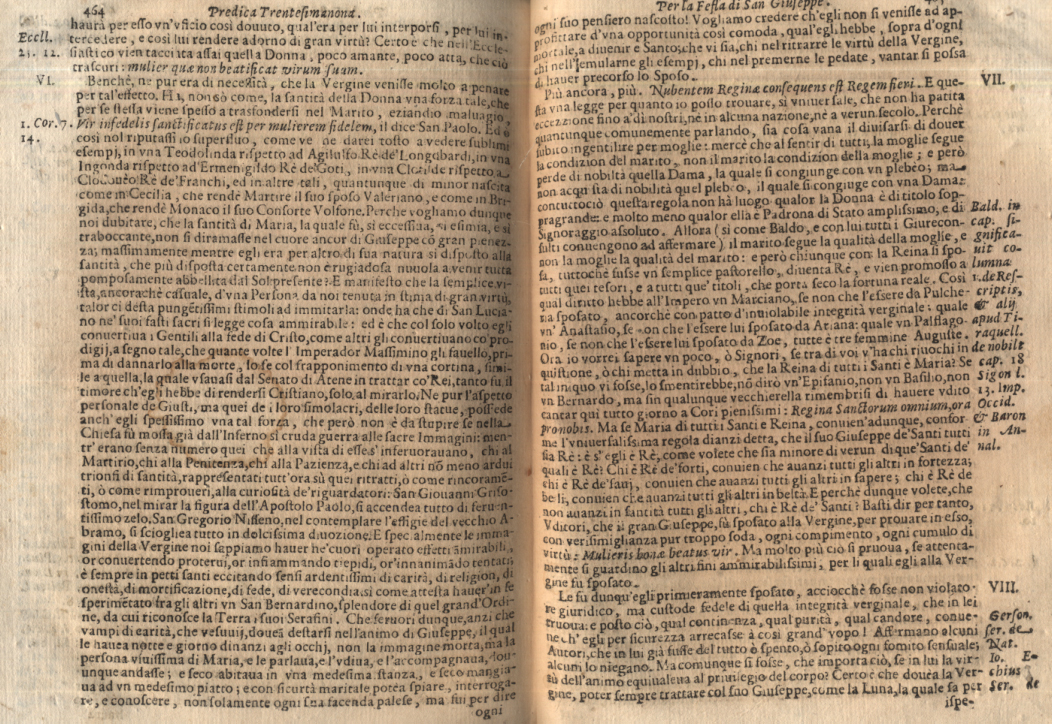 464 Predica Trentesimanona.
haurà per esso vn'vficio così douuto, qual'era per lui interporsi, per lui in-
Eccll. tercedere, e così lui rendere adorno di gran virtù? Certo è che nell'Eccle-
25. 12. siastico vien tacciata assai quella Donna, poco amante, poco atta, che ciò
trascuri: mulier quæ non beatificat virum suum.
VI. Benchè, nè pur era di necessità, che la Vergine venisse molto a penare
per tal'effetto. Hà, non sò come, la santità della Donna vna forza tale, che
per se stessa viene spesso a trasfondersi nel Marito, eziandio maluagio,
1. Cor. 7. Vir infidelis sanctificatus est per mulierem fidelem, il dice San Paolo. Ed ò
14. così nol riputassi io superfluo, come ve ne darei tosto a vedere sublimi
esempj, in vna Teodolinda rispetto ad Agilulfo Rè de' Longobardi, in vna
Ingonda rispetto ad Ermenigildo Rè de'Goti, in vna Clotilde rispetto a
Clodoueo Rè de'Franchi, ed in altre tali, quantunque di minor nascita
come in Cecilia, che rendè Martire il suo sposo Valeriano, e come in Bri-
gida, che rendè Monaco il suo Consorte Volfone. Perche vogliamo dunque
noi dubitare, che la santità di Maria, la quale fù, sì eccessiua, sì esimia, e sì
traboccante, non si diramasse nel cuore ancor di Giuseppe cō gran pienez-
za; massimamente mentre egli era per altro di sua natura sì disposto alla
santità, che più disposta certamente non è rugiadosa nuuola a venir tutta
pomposamente abbellita dal Sol presente? E manifesto che la semplice vi-
sta, ancorachè casuale, d'vna Persona da noi tenuta in stima di gran virtù,
talor ci desta pungetissimi stimoli ad immitarla: onde ha che di San Lucia-
no ne' suoi fasti sacri si legge cosa ammirabile: ed è che col solo volto egli
conuertiua i Gentili alla fede di Cristo, come altri gli conuertiuano co'pro-
digij, a segno tale, che quante volte l' Imperador Massimino gli fauellò, pri-
ma di dannarlo alla morte, lo fe col frapponimento di vna cortina, simi-
le a quella, la quale vsauasi dal Senato di Atene in trattar co'Rei, tanto fu il
timore ch'egli hebbe di rendersi Cristiano, solo, al mirarlo. Ne pur l'aspetto
personale de Giusti, ma quei de i loro simolacri, delle loro statue, possede
anch' egli spessissimo vna tal forza, che però non è da stupire se nella
Chiesa fù mossa già dall'Inferno sì cruda guerra alle sacre Immagini: men-
tr' erano senza numero quei che alla vista di esse s' inferuorauano, chi al
Martirio, chi alla Penitenza, chi alla Pazienza, e chi ad altri nō meno ardui
trionfi di santità, rappresentati tutt'ora sù quei ritratti, ò come rincoramē-
ti, ò come rimproueri, alla curiosità de'riguardatori: San Giouanni Griso-
stomo, nel mirar la figura dell'Apostolo Paolo, si accendea tutto di feruen-
tissimo zelo. San Gregorio Nisseno, nel contemplare l'effigie del vecchio A-
bramo, si scioglica tutto in dolcissima diuozione. E specialmente le imma-
gini della Vergine noi sappiamo hauer ne'cuori operato effetti āmirabili,
or conuertendo proterui, or infiammando tiepidi, or'innanimādo tentati;
è sempre in petti santi eccitando sensi ardentissimi di carità, di religion, di
onestà, di mortificazione, di fede, di verecondia: sì come attesta hauer'in se
sperimētato fra gli altri vn San Bernardino, splendore di quel grand'Ordi-
ne, da cui riconosce la Terra i suoi Serafini. Che feruori dunque, anzi che
vampi di carità, che vesuuij, douea destarsi nell'animo di Giuseppe, il qual
le hauea notte e giorno dinanzi agli occhj, non la immagine morta, ma la
persona viuissima di Maria, e le parlaua, e l'vdiua, e l'accompagnaua, dou-
unque andasse; e seco abitaua in vna medesima stanza, e seco mangia-
ua ad vn medesimo piatto; e con sicurtà maritale potea spiare, interroga-
re, e conoscere, non solamente ogni sua facenda palese, ma fui per dire
ogni
Per la Festa di San Giuseppe.
ogni suo pensiero nascosto! Vogliamo credere ch'egli non si venisse ad ap-
profittare d'vna opportunità così comoda, qual'egli hebbe, sopra d'ogni
mortale, a diuenir e Santo; che vi sia, chi nel ritrarre le virtù della Vergine,
chi nell'emularne gli esempj, chi nel premerne le pedate, vantar si possa
di hauer precorso lo Sposo.
Più ancora, più. Nubentem Reginæ consequens est Regem fieri. E que- VII.
sta vna legge per quanto io posso trouare, sì vniuersale, che non ha patita
eccezzione fino a dì nostri, nè in alcuna nazione, nè a verun secolo. Perchè
quantunque comunemente parlando, sia cosa vana il diuisarsi di douer
subito ingentilire per moglie: mercè che al sentir di tutti, la moglie segue
la condizion del marito, non il marito la condizion della moglie; e però
perde di nobiltà quella Dama, la quale si congiunge con vn plebeo; ma
non acquista di nobiltà quel plebeo, il quale si congiunge con vna Dama:
contuttociò questa regola non hà luogo qualor la Donna è di titolo sop-
pragrande: e molto meno qualor ella è Padrona di Stato amplissimo, e di Bald. in
Signoraggio assoluto. Allora (sì come Baldo, e con lui tutti i Giurecon- cap. si-
sulti conuengono ad affermare) il marito segue la qualità della moglie, e gnifica-
non la moglie la qualità del marito: e però chiunque con la Reina si spo- uit co-
sa, tuttochè fusse vn semplice pastorello, diuenta Rè, e vien promosso a lumna:
tutti quei tesori, e a tutti que' titoli, che porta seco la fortuna reale. Così 1. de Res-
qual diritto hebbe all'Impero vn Marciano, se non che l'essere da Pulche- criptis,
ria sposato, ancorchè con patto d'inuiolabile integrità verginale: quale & alij
vn' Anastasio, se non che l'essere lui sposato da Ariana: quale vn Paflago- apud Ti-
nio, se non che l'essere lui sposato da Zoe, tutte è tre femmine Auguste. raquell.
Ora io vorrei sapere vn poco, ò Signori, se tra di voi v'ha chi riuochi in de nobilt
quistione, ò chi metta in dubbio, che la Reina di tutti i Santi è Maria? Se cap. 18
tal iniquo vi fosse, lo smentirebbe, nō dirò vn'Epifanio, non vn Basilio, non Sigon l.
vn Bernardo, ma fin qualunque vecchierella rimembrisi di hauere vdito 13. Imp.
cantar qui tutto giorno a Cori pienissimi: Regina Sanctorum omnium, ora Occid.
pro nobis. Ma se Maria di tutti i Santi e Reina, conuien'adunque, confor- & Baron
me l'vniuersalissima regola dianzi detta, che il suo Giuseppe de'Santi tutti in An-
sia Rè: è s' egli è Rè, come volete che sia minore di verun di que'Santi de' nal.
quali è Rè? Chi è Rè de'forti, conuien che auanzi tutti gli altri in fortezza;
chi è Rè de'sauj, conuien che auanzi tutti gli altri in sapere; chi è Rè de
belli, conuien che auanzi tutti gli altri in beltà. E perchè dunque volete, che
non auanzi in santità tutti gli altri, chi è Rè de' Santi? Basti dir per tanto,
Vditori, che il gran Giuseppe, fù sposato alla Vergine, per prouare in esso,
con verisimiglianza pur troppo soda, ogni compimento, ogni cumulo di
virtù: Mulieris bonæ beatus vir. Ma molto più ciò si pruoua, se attenta-
mente si guardino gli altri fini ammirabilissimi, per li quali egli alla Ver-
gine fu sposato.
Le fu dunqu'egli primieramente sposato, acciocchè fosse non violato- VIII.
re giuridico, ma custode fedele di quella integrità verginale, che in lei
truoua: e posto ciò, qual continenza, qual purità, qual candore, conue- Gerson.
ne ch' egli per sicurezza arrecasse à così grand' vopo! Affermano alcuni ser. de
Autori, che in lui già fusse del tutto ò spento, ò sopito ogni fomito sensuale; Nat.
alcuni lo niegano. Ma comunque si fosse, che importa ciò, se in lui la vir- Io. E-
tù dell'animo equiualeua al priuilegio del corpo? Certo è che douea la Ver- chius
gine, poter sempre trattare col suo Giuseppe, come la Luna, la quale sa per Ser. de
ispe-